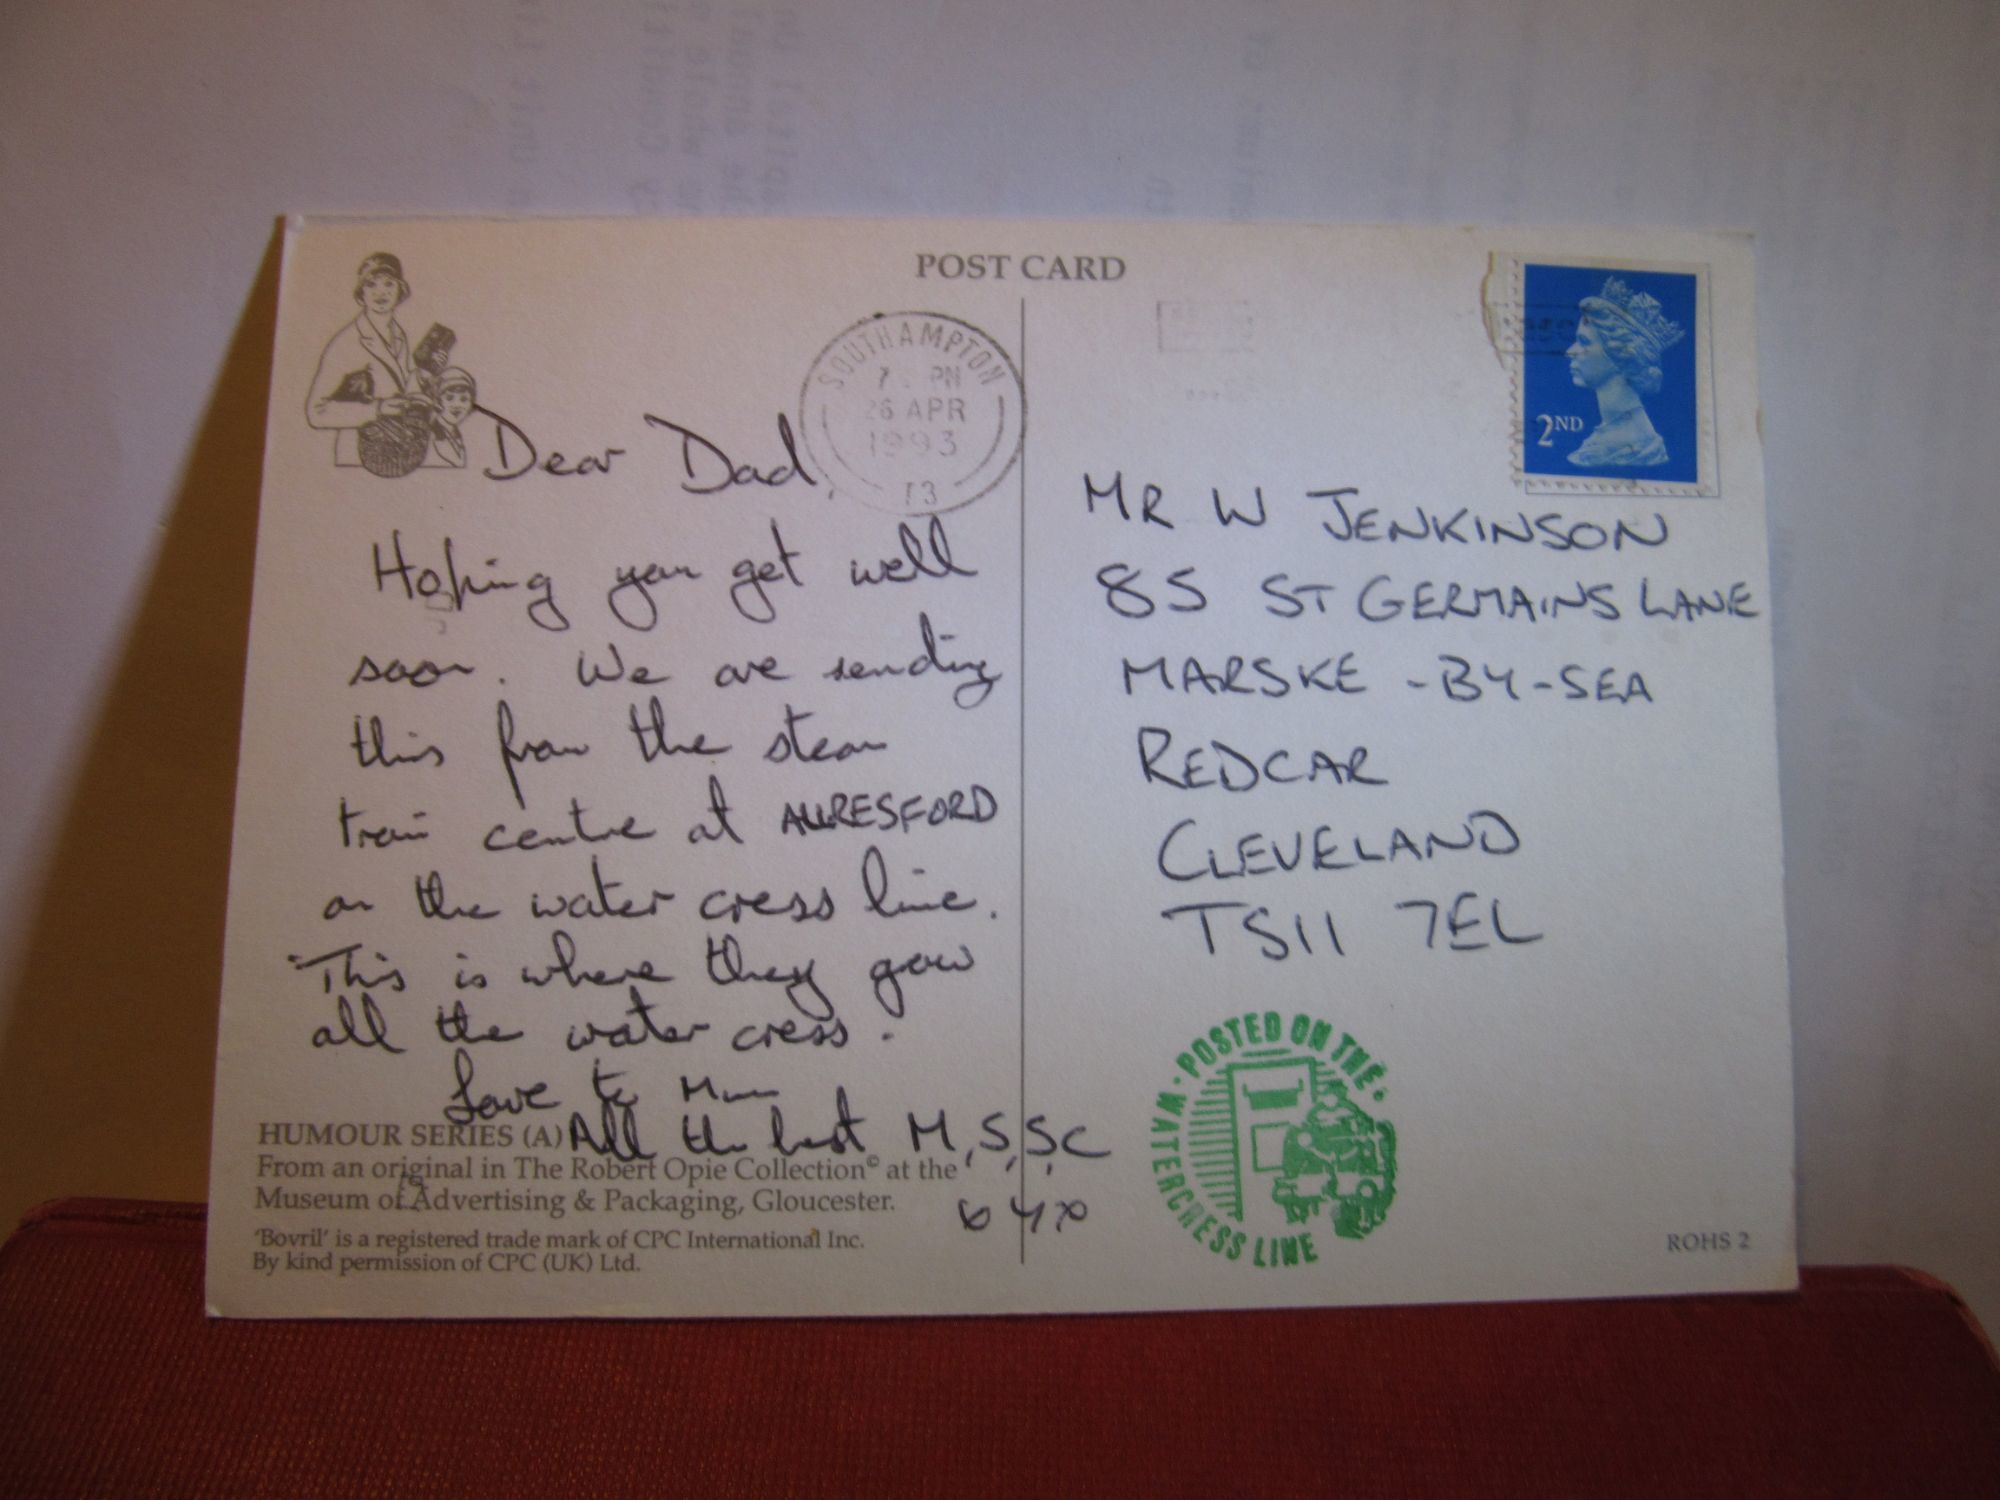 POST CARD
SOUTHAMPTON
PM
26 APR
1993
13
2ND
Dear Dad,
Hoping you get well
soon. We are sending
this from the steam
train centre at ALRESFORD
on the water cress line.
This is where they grow
all the water cress.
Love to Mum
All the best M, S, S, C
HUMOUR SERIES (A)
From an original in The Robert Opie Collection© at the
Museum of Advertising & Packaging, Gloucester.
'Bovril' is a registered trade mark of CPC International Inc.
By kind permission of CPC (UK) Ltd.
MR W JENKINSON
85 ST GERMAINS LANE
MARSKE-BY-SEA
REDCAR
CLEVELAND
TS11 7EL
· POSTED ON THE · WATERCRESS LINE
ROHS 2